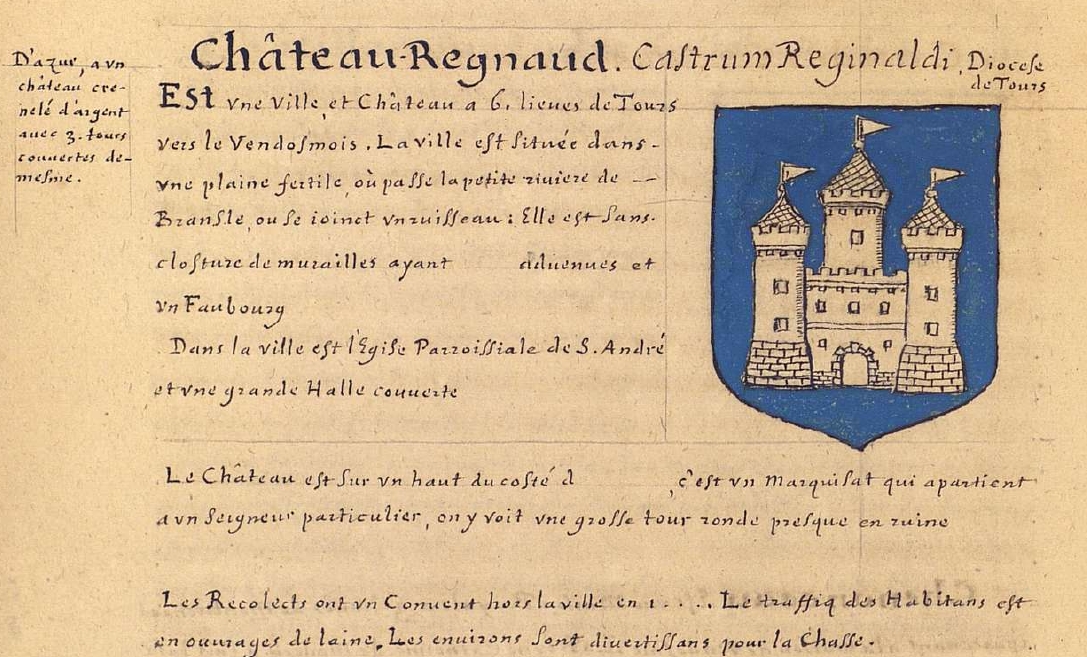 Château-Regnaud. Castrum Reginaldi, Diocese
de Tours
D'azur, a vn
château cre-
nelé d'argent
auec 3. tours
couuertes de-
mesme.
Est vne Ville, et Château a 6. lieues de Tours
vers le Vendosmois. La ville est située dans-
vne plaine fertile, où passe la petite riviere de —
Bransle, ou se ioinct vn ruisseau: Elle est sans.
closture de murailles ayant aduenues et
vn Faubourg
Dans la ville est l'Egise Parroissiale de S. André
et vne grande Halle couuerte
Le Château est sur vn haut du costé d , c'est vn Marquisat qui apartient
a vn Seigneur particulier, on y voit vne grosse tour ronde presque en ruine
Les Recolects ont vn Conuent hors la ville en 1 . . . . Le traffiq des Habitans est
en ouurages de laine. Les enuirons sont diuertissans pour la Chasse.